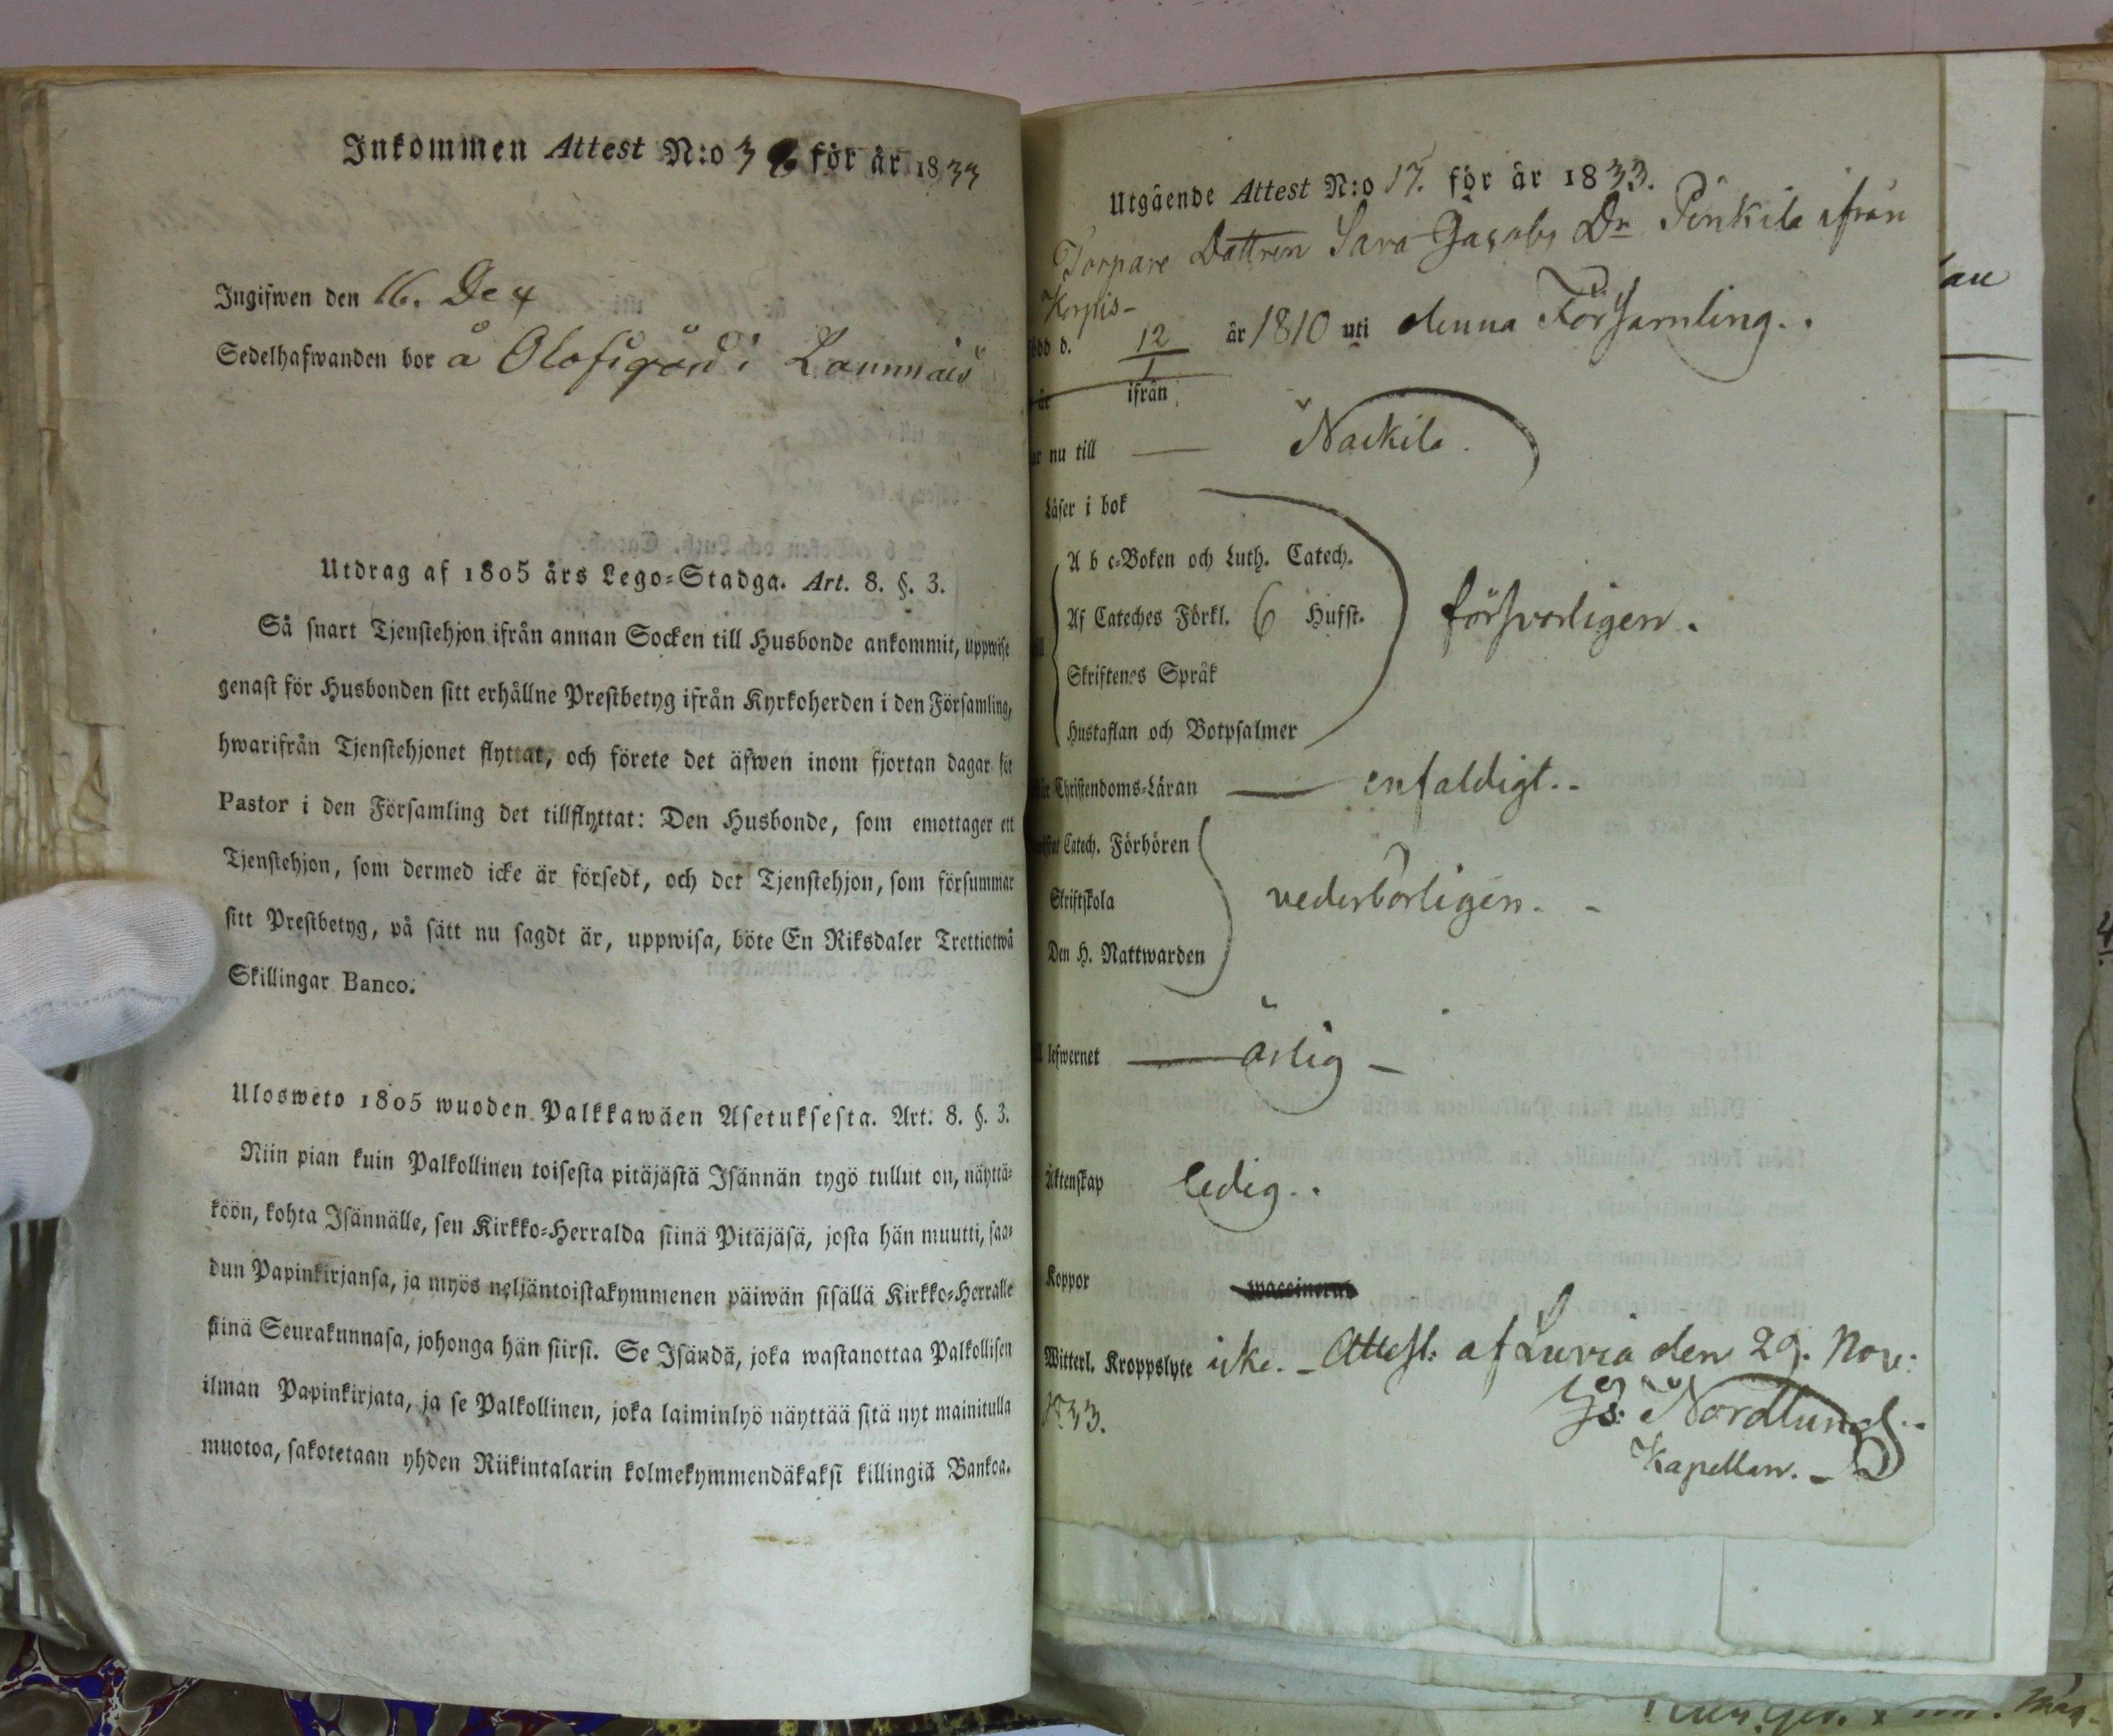 Inkommen Attest N:o 3 för år 1833
Ingifwen den 16. Dec
Sedelhafwanden bor å Olofsgård i Lammais
Utdrag af 1805 års Lego-Stadga. Art. 8. §. 3.
Så snart Tjenstehjon ifrån annan Socken till Husbonde ankommit, uppwise
genast för Husbonden sitt erhållne Prestbetyg ifrån Kyrkoherden i den Församling,
hwarifrån Tjenstehjonet flyttat, och förete det äfwen inom fjortan dagar för
Pastor i den Församling det tillflyttat: Den Husbonde, som emottager ett
Tjenstehjon, som dermed icke är försedt, och det Tjenstehjon, som försummar
sitt Prestbetyg, på sätt nu sagdt är, uppwisa, böte En Riksdaler Trettiotwå
Skillingar Banco.
Ulosweto 1805 wuoden Palkkawäen Asetuksesta. Art. 8. §. 3.
Niin pian kuin Palkollinen toisesta pitäjästä Isännän tygö tullut on, näyttä-
köön, kohta Isännälle, sen Kirkko-Herralda siinä Pitäjäsä, josta hän muutti, saa-
dun Papinkirjansa, ja myös neljäntoistakymmenen päiwän sisällä Kirkko-Herralle
siinä Seurakunnasa, johonga hän siirsi. Se Isändä, joka wastanottaa Palkollisen
ilman Papinkirjata, ja se Palkollinen, joka laiminlyö näyttää sitä nyt mainitulla
muotoa, sakotetaan yhden Riikintalarin kolmekymmendäkaksi killingiä Bankoa.
Utgående Attest N:o 17. för år 1833.
Torpare Dottren Sara Jacobs Dr Penkila ifrån
Korpis-
född d. 12/1 år 1810 uti denna Församling.
år ifrån
nu till — Nackila.
Läser i bok
A b c-Boken och Luth. Catech.
Af Cateches Förkl. 6 Hufst. försvarligen.
Skriftenes Språk
Hustaflan och Botpsalmer
Christendoms-Läran — enfaldigt.-
Catech. Förhören
Skriftskola vederbörligen. -
Den H. Nattwarden
lefwernet — ärlig —
Äktenskap ledig..
Koppor
Witterl. Kroppslyte icke. - Attest. af Luvia den 29. Nov:
1833.
Gs: Nordlund..
Kapellan. -